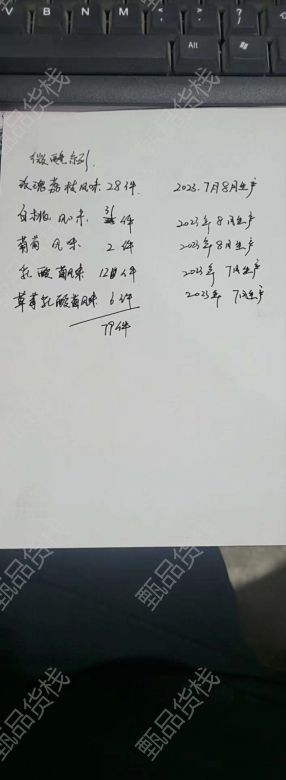 B N M
Alt
微醺系列
玫瑰荔枝风味 28件 2023.7月8月生产
白桃风味 31件 2023年8月生产
葡萄风味 2件 2023年8月生产
乳酸菌风味 12件 2023年7月生产
草莓乳酸菌风味 6件 2023年7月生产
79件
甄品货栈
甄品货栈
甄品货栈
甄品货栈
甄品货栈
甄品货栈
甄品货栈
甄品货栈
甄品货栈
甄品货栈